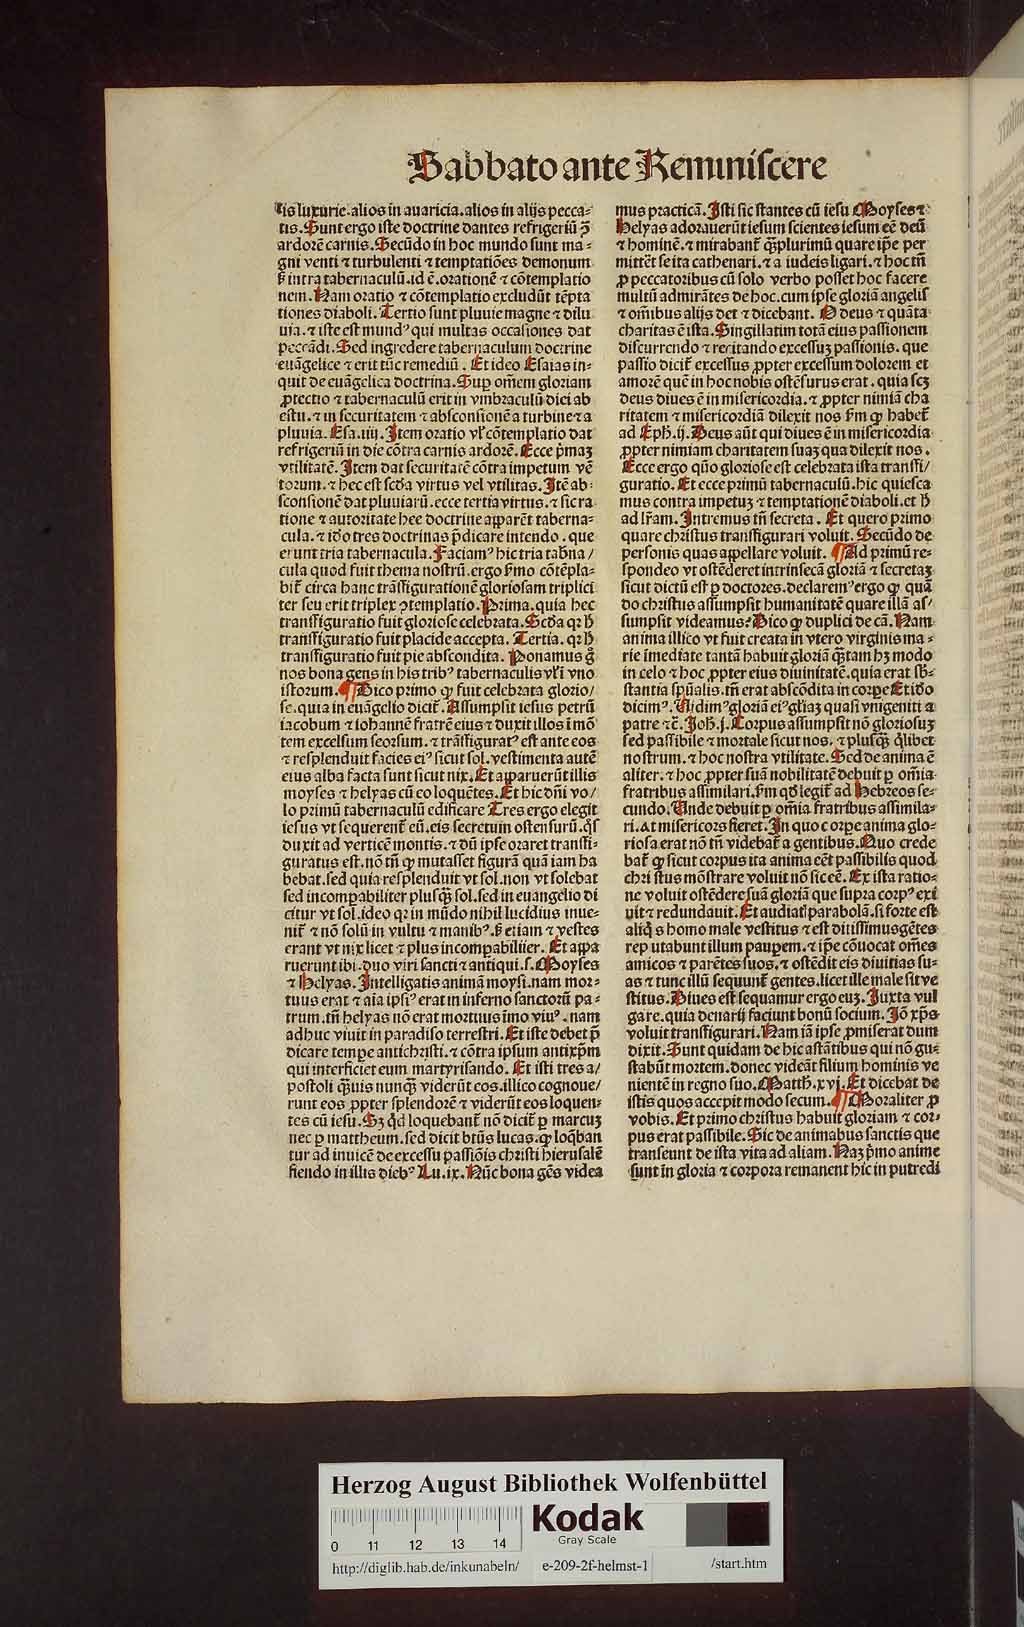 Sabbato ante Reminiscere
tis luxurie. alios in auaricia. alios in alijs pecca⸗
tis. Sunt ergo iste doctrine dantes refrigeriū ꝯ̄
ardorē carnis. Secūdo in hoc mundo sunt ma⸗
gni venti ⁊ turbulenti ⁊ temptatiōes demonum
sꝫ intra tabernaculū. id ē. orationē ⁊ cōtemplatio
nem. Nam oratio ⁊ cōtemplatio excludūt tēpta
tiones diaboli. Tertio sunt pluuie magne ⁊ dilu
uia. ⁊ iste est mundꝰ qui multas occasiones dat
peccādi. Sed ingredere tabernaculum doctrine
euāgelice ⁊ erit tūc remediū. Et ideo Esaias in⸗
quit de euāgelica doctrina. Suꝑ om̄em gloriam
ꝓtectio ⁊ tabernaculū erit in vmbraculū diei ab
estu. ⁊ in securitatem ⁊ absconsionē a turbine ⁊ a
pluuia. Esa. iiij. Item oratio vl̓ cōtemplatio dat
refrigeriū in die cōtra carnis ardorē. Ecce pͥmaꝫ
vtilitatē. Item dat securitatē cōtra impetum vē
torum. ⁊ hec est scd̓a virtus vel vtilitas. Itē ab⸗
sconsionē dat pluuiarū. ecce tertia virtus. ⁊ sic ra
tione ⁊ autoritate hec doctrine apparēt taberna⸗
cula. ⁊ id̓o tres doctrinas p̄dicare intendo. que
erunt tria tabernacula. Faciamꝰ hic tria tabn̄a /
cula quod fuit thema nostrū. ergo sm̄ō cōtēpla⸗
bit᷑ circa hanc trāsfigurationē gloriosam triplici
ter seu erit triplex ꝯtemplatio. Prima. quia hec
transfiguratio fuit gloriose celebrata. Scd̓a qꝛ h̓
transfiguratio fuit placide accepta. Tertia. qꝛ h̓
transfiguratio fuit pie abscondita. Ponamus gͦ
nos bona gens in his tribꝰ tabernaculis vl̓ ī vno
istorum. ¶ Dico primo ꝙ fuit celebrata glorio/
se. quia in euāgelio dicit᷑. Assumpsit iesus petrū
iacobum ⁊ iohannē fratrē eius ⁊ duxit illos ī mō
tem excelsum seorsum. ⁊ trāsfiguratꝰ est ante eos
⁊ resplenduit facies eiꝰ sicut sol. vestimenta autē
eius alba facta sunt sicut nix. Et apparuerūt illis
moyses ⁊ helyas cū eo loquētes. Et hic dn̄i vo/
lo primū tabernaculū edificare Tres ergo elegit
iesus vt sequerent᷑ eū. eis secretum ostensurū. q̓s
duxit ad verticē montis. ⁊ dū ipse oraret transfi⸗
guratus est. nō tn̄ ꝙ mutasset figurā quā iam ha
bebat. sed quia resplenduit vt sol. non vt solebat
sed incompabiliter plusqꝫ sol. sed in euangelio di
citur vt sol. ideo qꝛ in mūdo nihil lucidius inue⸗
nit᷑ ⁊ nō solū in vultu ⁊ manibꝰ. sꝫ etiam ⁊ vestes
erant vt nix licet ⁊ plus incompabiliter. Et appa
ruerunt ibi duo viri sancti ⁊ antiqui. s. Moyses
⁊ Helyas. Intelligatis animā moysi. nam mor⸗
tuus erat ⁊ aīa ipsiꝰ erat in inferno sanctorū pa⸗
trum. tn̄ helyas nō erat mortuus īmo viuꝰ. nam
adhuc viuit in paradiso terrestri. Et iste debet p̄
dicare tempe antichristi. ⁊ cōtra ipsum antixp̄m
qui interficiet eum martyrisando. Et isti tres a/
postoli qͣuis nunqꝫ viderūt eos. illico cognoue/
runt eos ꝓpter splendorē ⁊ viderūt eos loquen⸗
tes cū iesu. Sꝫ qͥd loquebant᷑ nō dicit᷑ ꝑ marcuꝫ
nec ꝑ mattheum. sed dicit btūs lucas. ꝙ loq̄ban
tur ad inuicē de excessu passiōis christi hierusalē
fiendo in illis diebꝰ Lu. ix. Nūc bona gēs videa
mus practicā. Isti sic stantes cū iesu Moyses ⁊
Helyas adorauerūt iesum scientes iesum eē deū
⁊ hominē. ⁊ mirabant᷑ qͣplurimū quare ip̄e per
mittēt se ita cathenari. ⁊ a iudeis ligari. ⁊ hoc tn̄
ꝓ peccatoribus cū solo verbo posset hoc facere
multū admirātes de hoc. cum ipse gloriā angelis
⁊ omnibus alijs det ⁊ dicebant. O deus ⁊ quāta
charitas ē ista. Singillatim totā eius passionem
discurrendo ⁊ recitando excessuꝫ passionis. que
passio dicit᷑ excessus ꝓpter excessum dolorem et
amorē quē in hoc nobis ostēsurus erat. quia scꝫ
deus diues ē in misericordia. ⁊ ꝓpter nimiā cha
ritatem ⁊ misericordiā dilexit nos sm̄ ꝙ habet᷑
ad Eph. ij. Deus aūt qui diues ē in misericordia
ꝓpter nimiam charitatem suaꝫ qua dilexit nos.
Ecce ergo quō gloriose est celebrata ista transfi/
guratio. Et ecce primū tabernaculū. hic quiesca
mus contra impetuꝫ ⁊ temptationē diaboli. et h̓
ad lr̄am. Intremus tn̄ secreta. Et quero primo
quare christus transfigurari voluit. Secūdo de
personis quas appellare voluit. ¶ Ad primū re⸗
spondeo vt ostēderet intrinsecā gloriā ⁊ secretaꝫ
sicut dictū est ꝑ doctores. declaremꝰ ergo ꝙ quā
do christus assumpsit humanitatē quare illā as/
sumpsit videamus: Dico ꝙ duplici de cā. Nam
anima illico vt fuit creata in vtero virginis ma⸗
rie īmediate tantā habuit gloriā qͣtam hꝫ modo
in celo ⁊ hoc ꝓpter eius diuinitatē. quia erat sb̄⸗
stantia sp̄ualis. tn̄ erat abscōdita in corꝑe Et id̓o
dicimꝰ. Uidimꝰ gloriā eiꝰ gl̓iaꝫ quasi vnigeniti a
patre ⁊c̄. Joh. j. Corpus assumpsit nō gloriosuꝫ
sed passibile ⁊ mortale sicut nos. ⁊ plusqꝫ qͥlibet
nostrum. ⁊ hoc nostra vtilitate. Sed de anima ē
aliter. ⁊ hoc ꝓpter suā nobilitatē debuit ꝑ om̄ia
fratribus assimilari. sm̄ qd̓ legit᷑ ad Hebreos se⸗
cundo. Unde debuit ꝑ om̄ia fratribus assimila⸗
ri. vt misericors fieret. In quo corꝑe anima glo⸗
riosa erat nō tn̄ videbat᷑ a gentibus. Quo crede
bat᷑ ꝙ sicut corpus ita anima eēt passibilis quod
christus mōstrare voluit nō sic eē. Ex ista ratio⸗
ne voluit ostēdere suā gloriā que supra corpꝰ exi
uit ⁊ redundauit. Et audiatꝭ parabolā. si forte est
aliqͥs homo male vestitus ⁊ est ditissimus gētes
reputabunt illum pauꝑem. ⁊ ip̄e cōuocat om̄es
amicos ⁊ parētes suos. ⁊ ostēdit eis diuitias su⸗
as ⁊ tunc illū sequunt᷑ gentes. licet ille male sit ve
stitus. Diues est sequamur ergo euꝫ. Juxta vul
gare. quia denarij faciunt bonū socium. Iō xp̄s
voluit transfigurari. Nam iā ipse ꝓmiserat dum
dixit. Sunt quidam de hic astātibus qui nō gu⸗
stabūt mortem. donec videāt filium hominis ve
nientē in regno suo. Matth. xvj. Et dicebat de
istis quos accepit modo secum. ¶ Moraliter ꝓ
vobis. Et primo christus habuit gloriam ⁊ cor⸗
pus erat passibile. Sic de animabus sanctis que
transeunt de ista vita ad aliam. Naꝫ pͥmo anime
sunt in gloria ⁊ corpora remanent hic in putredi
Herzog August Bibliothek Wolfenbüttel
Kodak
Gray Scale
0 11 12 13 14
http://diglib.hab.de/inkunabeln/ e-209-2f-helmst-1 /start.htm